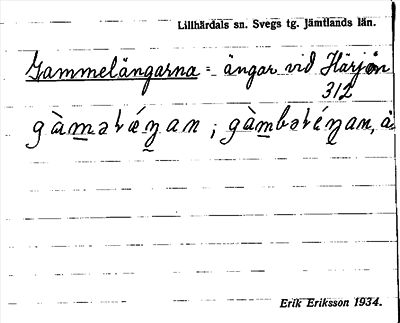 Lillhärdals sn. Svegs tg. Jämtlands län.
Gammelängarna = ängar vid Härjån
312
gàmǝlǽŋan, gàmbǝléŋan, à
Erik Eriksson 1934.